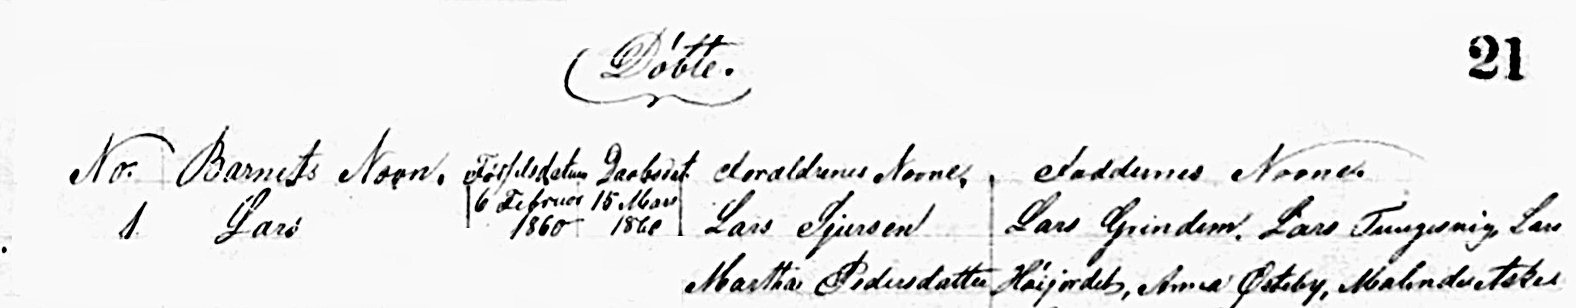 Döbte.
21
No. Barnets Navn. Födselsdatum Daabsdat. Forældrenes Navne. Faddernes Navne.
1 Lars 6 Februar 1860 15 Mars 1860 Lars Sjursen Lars Grindem, Lars Tungesvig, Lars
Martha Pedersdatter Höijordet, Anna Österby, Malinda